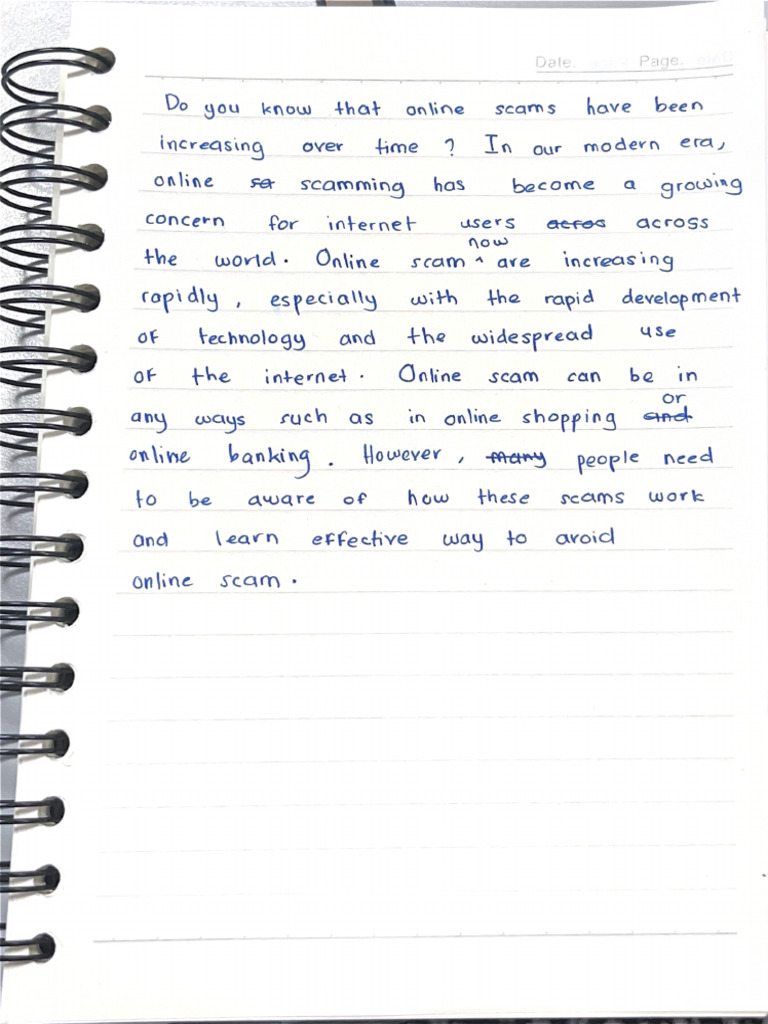 Date. Page.
Do you know that online scams have been
increasing over time ? In our modern era,
online sa scamming has become a growing
concern for internet users acros across
the world. Online scam ^ now are increasing
rapidly, especially with the rapid development
of technology and the widespread use
of the internet. Online scam can be in
any ways such as in online shopping and or
online banking. However, many people need
to be aware of how these scams work
and learn effective way to avoid
online scam.